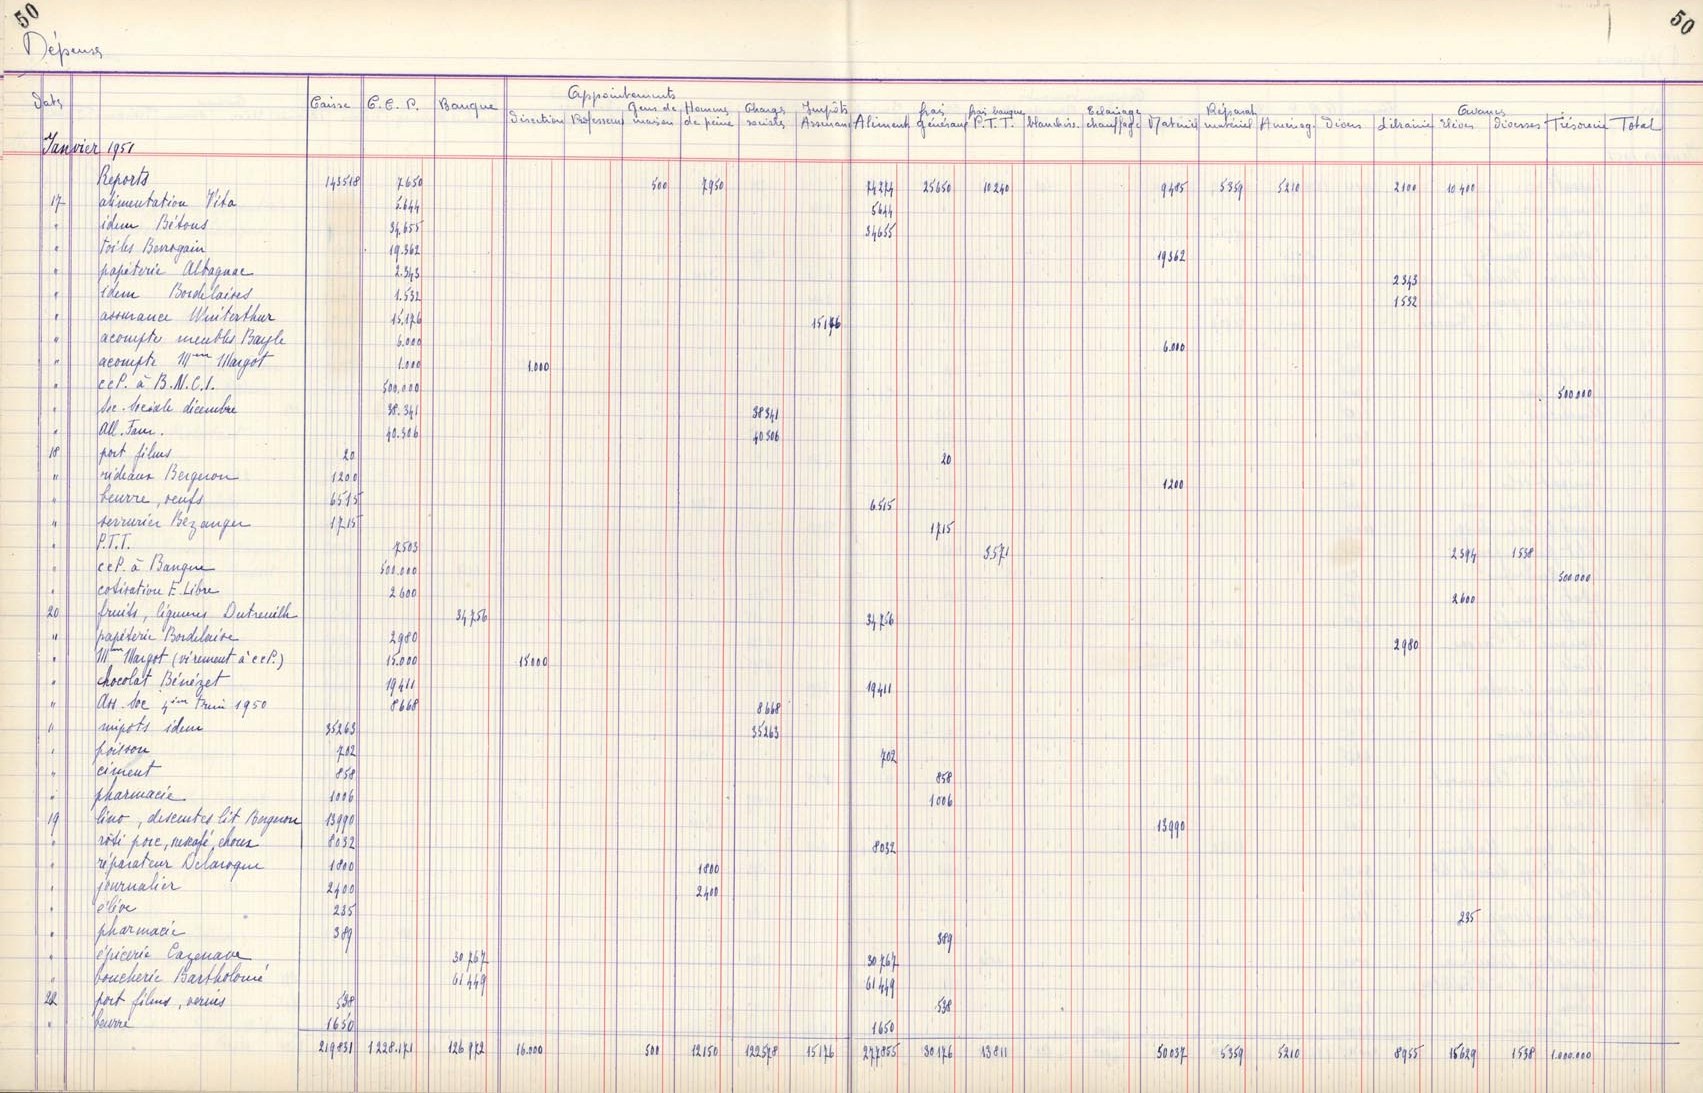 50 50
Dépenses
Appointements
Date Caisse C.C.P. Banque Direction Professeurs Gens de maison Homme de peine Charges sociales Impôts Assurances Aliment. frais généraux frais banque P.T.T. blanchiss. Eclairage chauffage Matériel Réparat matériel Aménag. Divers Librairie Avances Elèves Diverses Trésorerie Total
Janvier 1951
Reports 143518 7650 500 7950 74274 25650 10240 9485 5359 5210 2100 10400
17 alimentation Vita 5.644 5644
" idem Bétous 34.655 34655
" toiles Berrogain 19.362 19362
" papeterie Albagnac 2.343 2343
" idem Bordelaises 1.532 1532
" assurance Winterthur 15.176 15176
" acompte meubles Bayle 6.000 6.000
" acompte Mme Margot 1.000 1.000
" ccP. à B.N.C.I. 500.000 500.000
" Sec. Sociale décembre 38.341 38341
" All. Fam. 40.506 40506
18 port films 20 20
" rideaux Bergeron 1200 1200
" beurre, oeufs 6515 6515
" serrurier Bézanger 1715 1715
" P.T.T. 7503 3571 2394 1538
" ccP. à Banque 500.000 500.000
" cotisation E. Libre 2600 2600
20 fruits, légumes Dutreuilh 34756 34756
" papeterie Bordelaise 2980 2980
" Mme Margot (virement à ccP.) 15.000 15000
" chocolat Bénézet 19411 19411
" Ass. Soc 4ème Trim 1950 8668 8668
" impots idem 35263 35263
" poisson 702 702
" ciment 858 858
" pharmacie 1006 1006
19 lino, descentes lit Bergeron 13990 13990
" rôti porc, nescafé, choux 8032 8032
" réparateur Delaroque 1800 1800
" journalier 2400 2400
" élève 235 235
" pharmacie 389 389
" épicerie Cazenave 30767 30767
" boucherie Bartholomé 61449 61449
22 port films, vernis 538 538
" beurre 1650 1650
219831 1228.171 126972 16.000 500 12150 122578 15176 277855 30176 13811 50037 5359 5210 8955 15629 1538 1.000.000